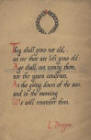 They shall grow not old,
as we that are left grow old
Age shall not weary them,
nor the years condemn,
At the going down of the sun,
and in the morning
We will remember them.
L.